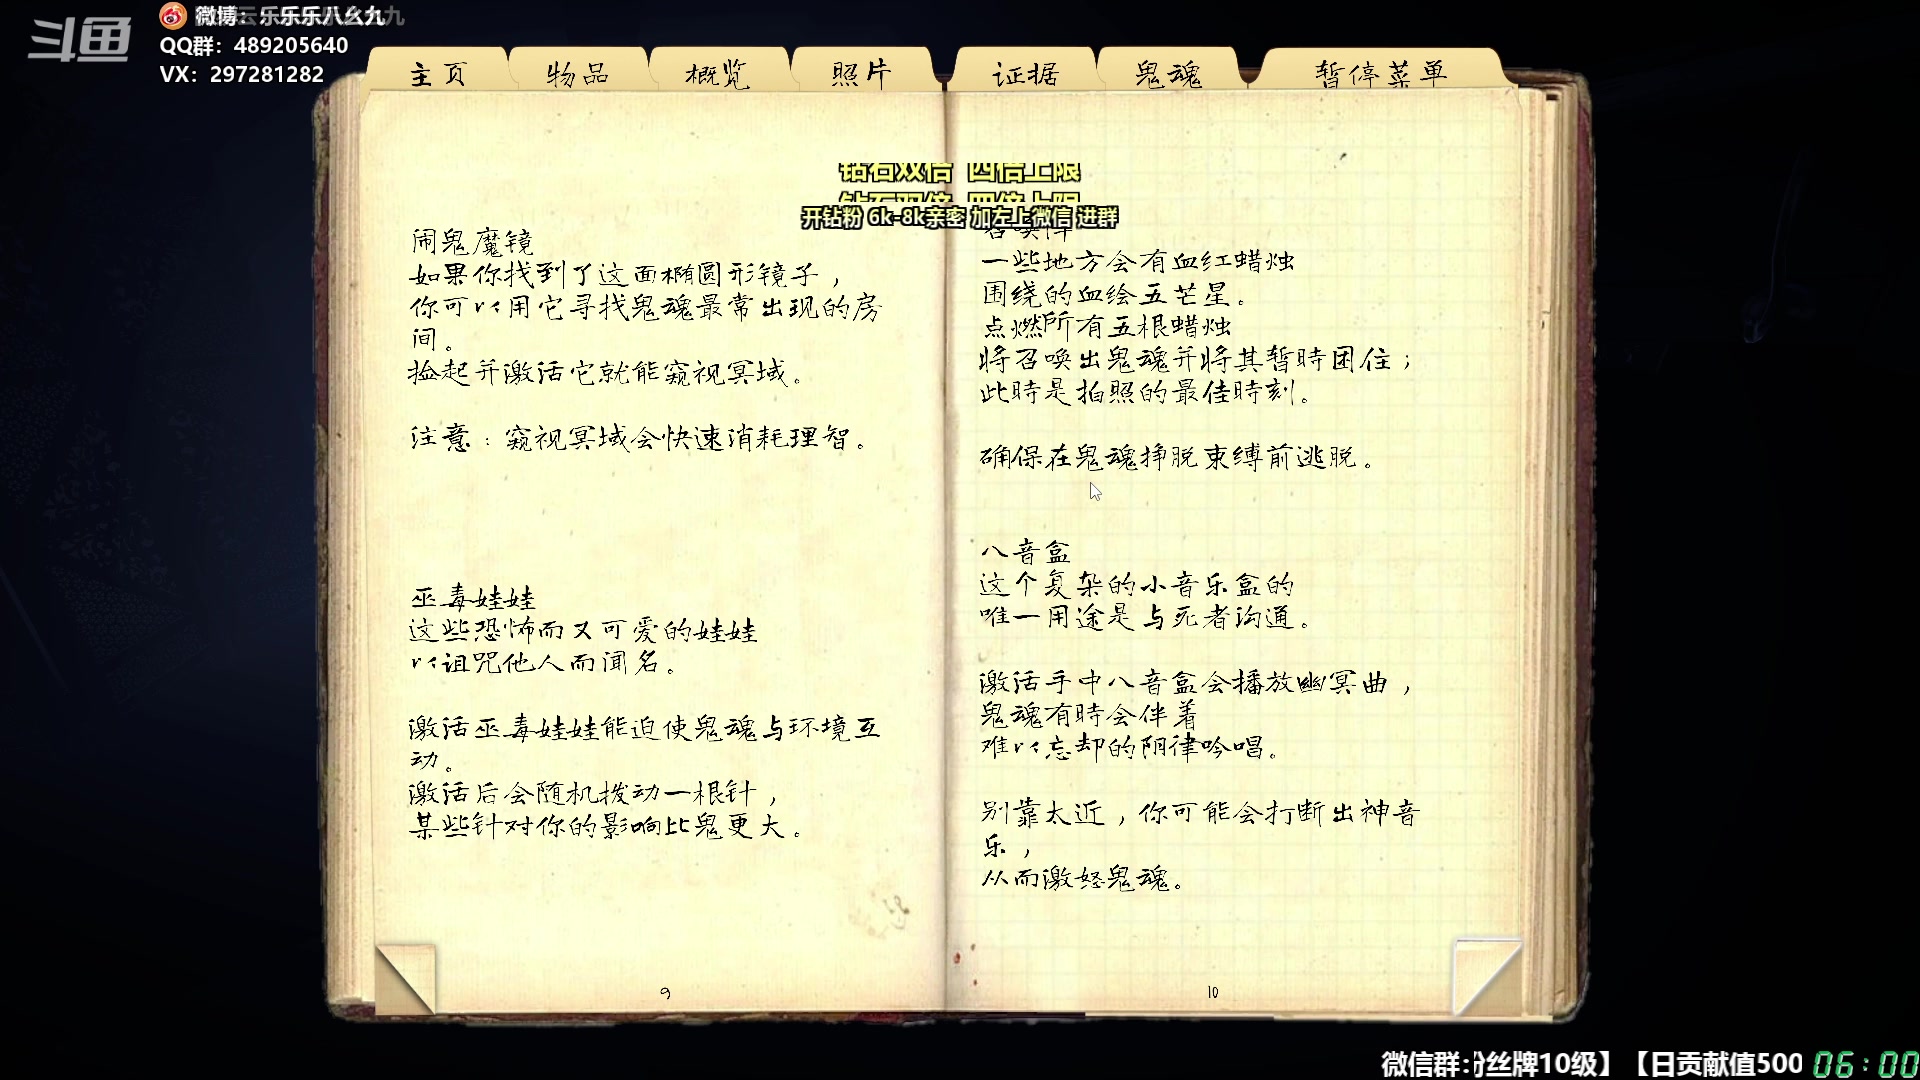 斗鱼
QQ群：489205640
VX：297281282
主页
物品
概览
照片
证据
鬼魂
暂停菜单
钻石双倍 四倍上限
开钻粉 6k-8k亲密 加左上微信 进群
闹鬼魔镜
如果你找到了这面椭圆形镜子，
你可以用它寻找鬼魂最常出现的房
间。
捡起并激活它就能窥视冥域。
注意：窥视冥域会快速消耗理智。
巫毒娃娃
这些恐怖而又可爱的娃娃
以诅咒他人而闻名。
激活巫毒娃娃能迫使鬼魂与环境互
动。
激活后会随机拨动一根针，
某些针对你的影响比鬼更大。
9
召唤阵
一些地方会有血红蜡烛
围绕的血绘五芒星。
点燃所有五根蜡烛
将召唤出鬼魂并将其暂時困住；
此時是拍照的最佳時刻。
确保在鬼魂挣脱束缚前逃脱。
八音盒
这个复杂的小音乐盒的
唯一用途是与死者沟通。
激活手中八音盒会播放幽冥曲，
鬼魂有時会伴着
难以忘却的阴律吟唱。
别靠太近，你可能会打断出神音
乐，
从而激怒鬼魂。
10
微信群:粉丝牌10级】【日贡献值500
06:00